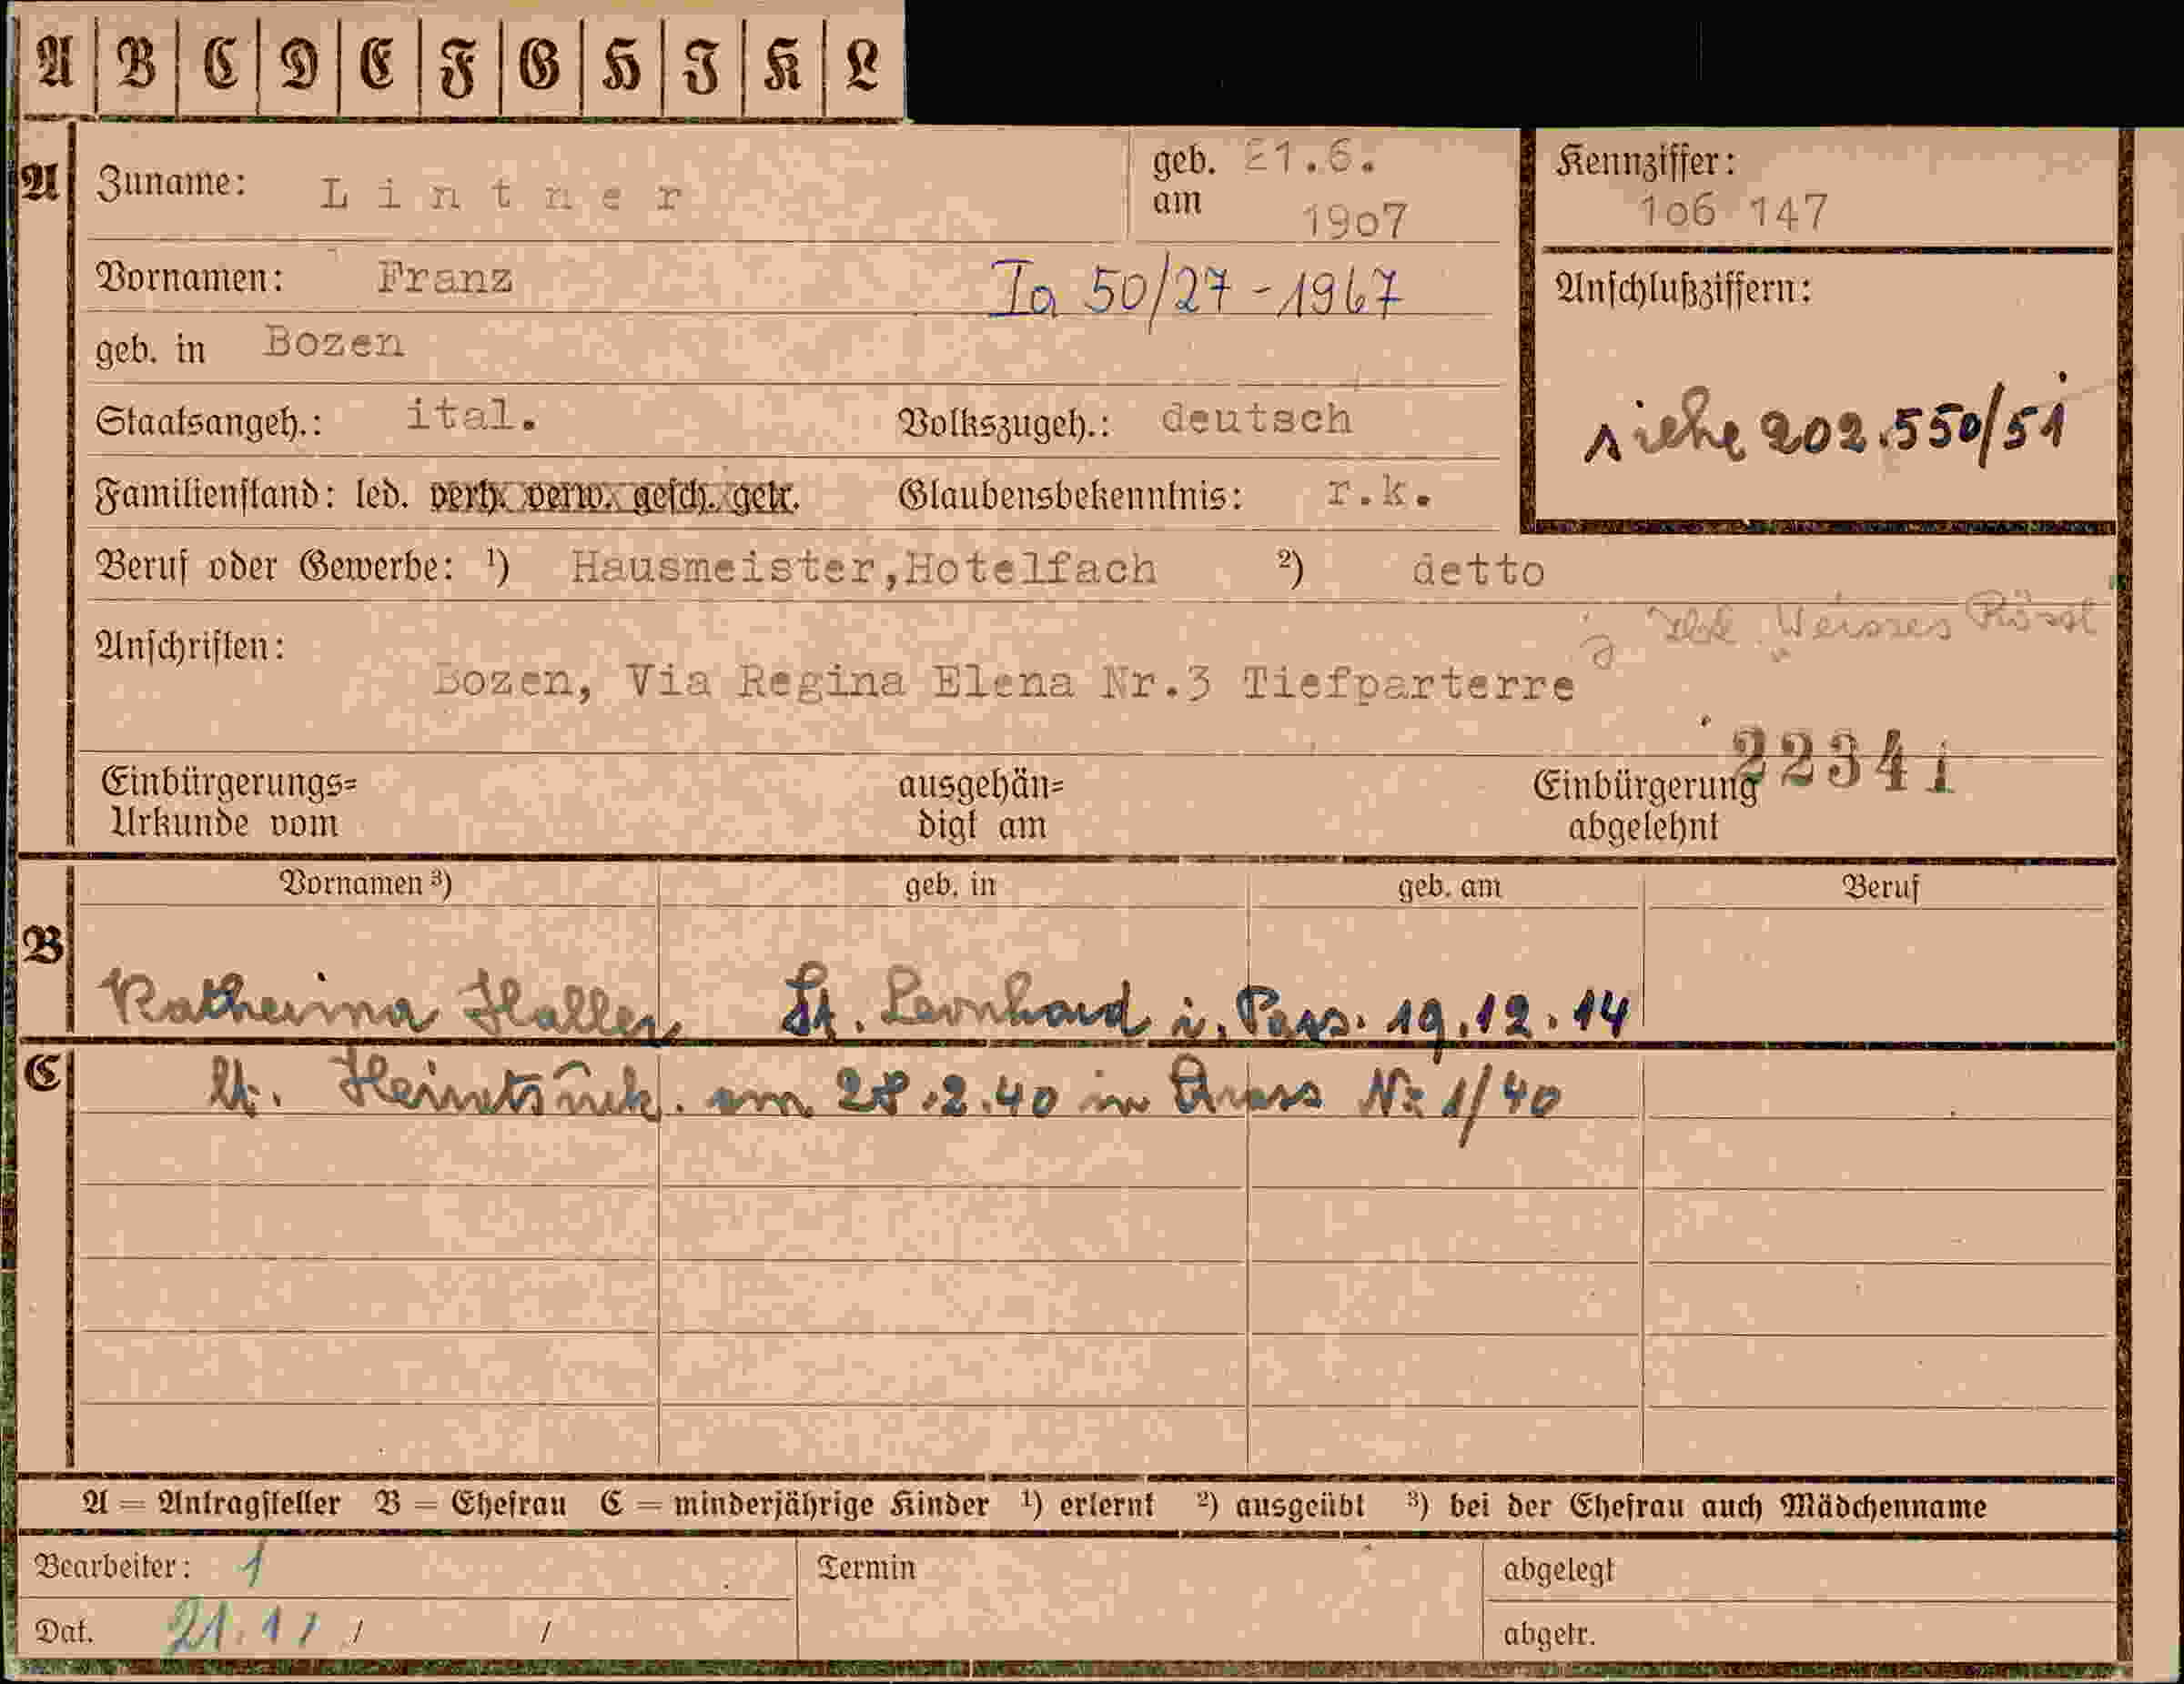 A B C D E F G H I K L
A Zuname: Lintner geb. am 21.6. 1907 Kennziffer: 1o6 147
Vornamen: Franz Ia 50/27-1967 Anschlußziffern:
geb. in Bozen
siehe 202.550/51
Staatsangeh.: ital. Volkszugeh.: deutsch
Familienstand: led. verh. verw. gesch. getr. Glaubensbekenntnis: r.k.
Beruf oder Gewerbe: ¹) Hausmeister,Hotelfach ²) detto
Weisses Rössl
Anschriften:
Bozen, Via Regina Elena Nr.3 Tiefparterre
22341
Einbürgerungs= ausgehän= Einbürgerung
Urkunde vom digt am abgelehnt
Vornamen ³) geb. in geb. am Beruf
B
Katherina Haller St. Leonhard i. Pass. 19.12.14
C lt. am 28.2.40 in Nr 1/40
A = Antragsteller B = Ehefrau C = minderjährige Kinder ¹) erlernt ²) ausgeübt ³) bei der Ehefrau auch Mädchenname
Bearbeiter: 1 Termin abgelegt
Dat. 21. / / abgetr.